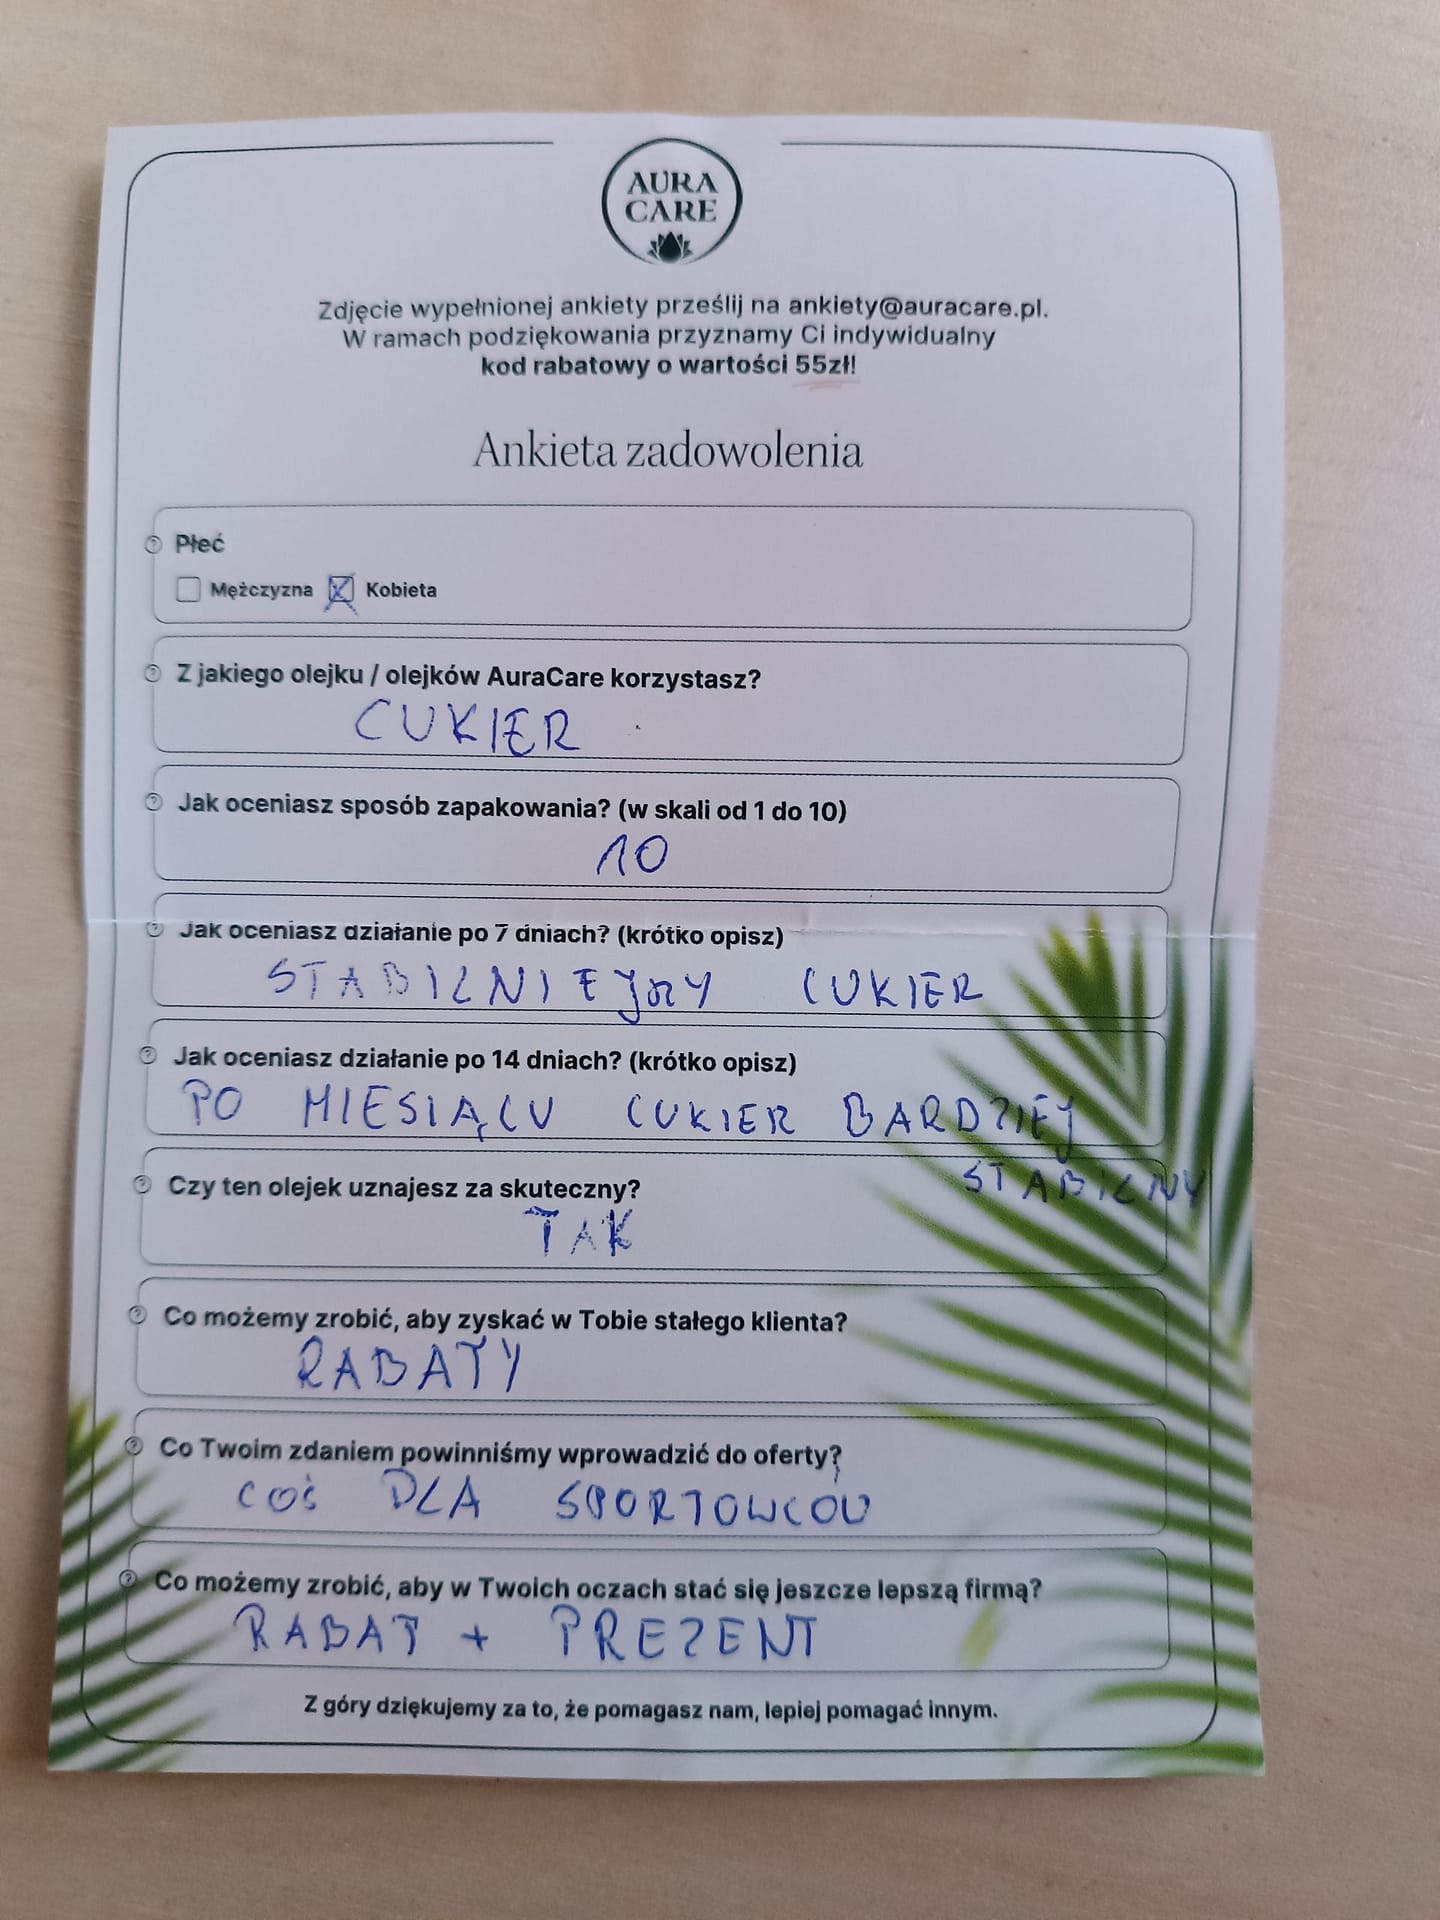 AURA
CARE
Zdjęcie wypełnionej ankiety prześlij na ankiety@auracare.pl.
W ramach podziękowania przyznamy Ci indywidualny
kod rabatowy o wartości 55zł!
Ankieta zadowolenia
Płeć
Mężczyzna Kobieta
Z jakiego olejku / olejków AuraCare korzystasz?
CUKIER
Jak oceniasz sposób zapakowania? (w skali od 1 do 10)
10
Jak oceniasz działanie po 7 dniach? (krótko opisz)
STABILNIEJSZY CUKIER
Jak oceniasz działanie po 14 dniach? (krótko opisz)
PO MIESIĄCU CUKIER BARDZIEJ
STABILNY
Czy ten olejek uznajesz za skuteczny?
TAK
Co możemy zrobić, aby zyskać w Tobie stałego klienta?
RABATY
Co Twoim zdaniem powinniśmy wprowadzić do oferty?
COŚ DLA SPORTOWCÓW
Co możemy zrobić, aby w Twoich oczach stać się jeszcze lepszą firmą?
RABAT + PREZENT
Z góry dziękujemy za to, że pomagasz nam, lepiej pomagać innym.